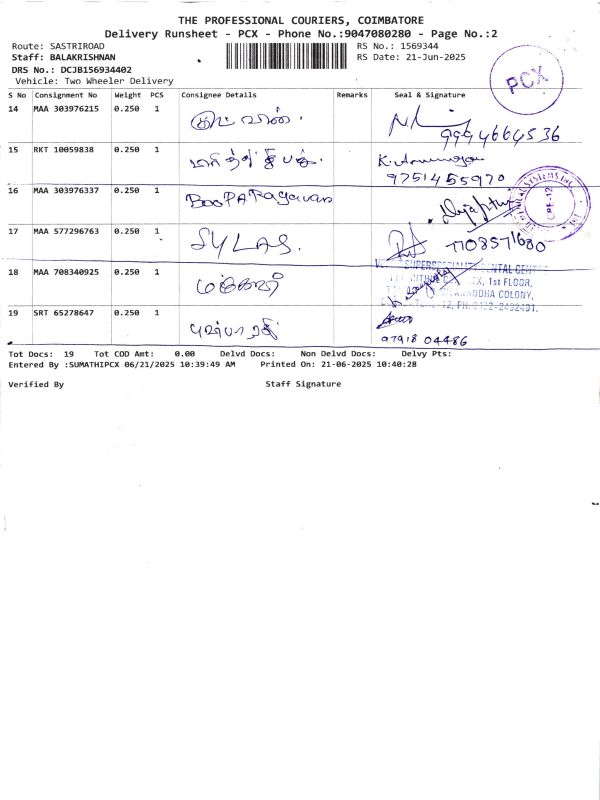 THE PROFESSIONAL COURIERS, COIMBATORE
Delivery Runsheet - PCX - Phone No.:9047080280 - Page No.:2
Route: SASTRIROAD
RS No.: 1569344
Staff: BALAKRISHNAN
RS Date: 21-Jun-2025
DRS No.: DCJB156934402
Vehicle: Two Wheeler Delivery
PCX
S No Consignment No Weight PCS Consignee Details Remarks Seal & Signature
14 MAA 303976215 0.250 1
9994664536
15 RKT 10059838 0.250 1
9751455970
16 MAA 303976337 0.250 1 BooPARagavan
17 MAA 577296763 0.250 1 SYLAS. 7708571680
18 MAA 708340925 0.250 1
1st FLOOR,
COLONY,
19 SRT 65278647 0.250 1
97918 04486
Tot Docs: 19 Tot COD Amt: 0.00 Delvd Docs: Non Delvd Docs: Delvy Pts:
Entered By :SUMATHIPCX 06/21/2025 10:39:49 AM Printed On: 21-06-2025 10:40:28
Verified By Staff Signature